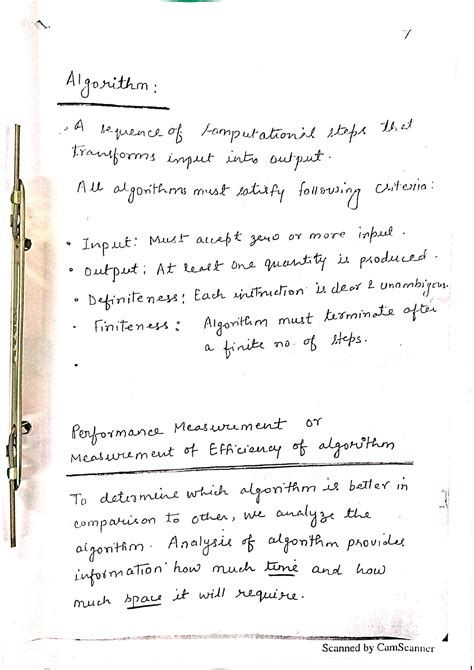 1.
Algorithm:
A sequence of computational steps that
transforms input into output.
All algorithms must satisfy following criteria:
• Input: Must accept zero or more input.
• Output: At least one quantity is produced.
• Definiteness: Each instruction is clear & unambigous.
• Finiteness: Algorithm must terminate after
a finite no. of steps.
•
Performance Measurement or
Measurement of Efficiency of algorithm
To determine which algorithm is better in
comparison to other, we analyze the
algorithm. Analysis of algorithm provides
information how much time and how
much space it will require.
Scanned by CamScanner